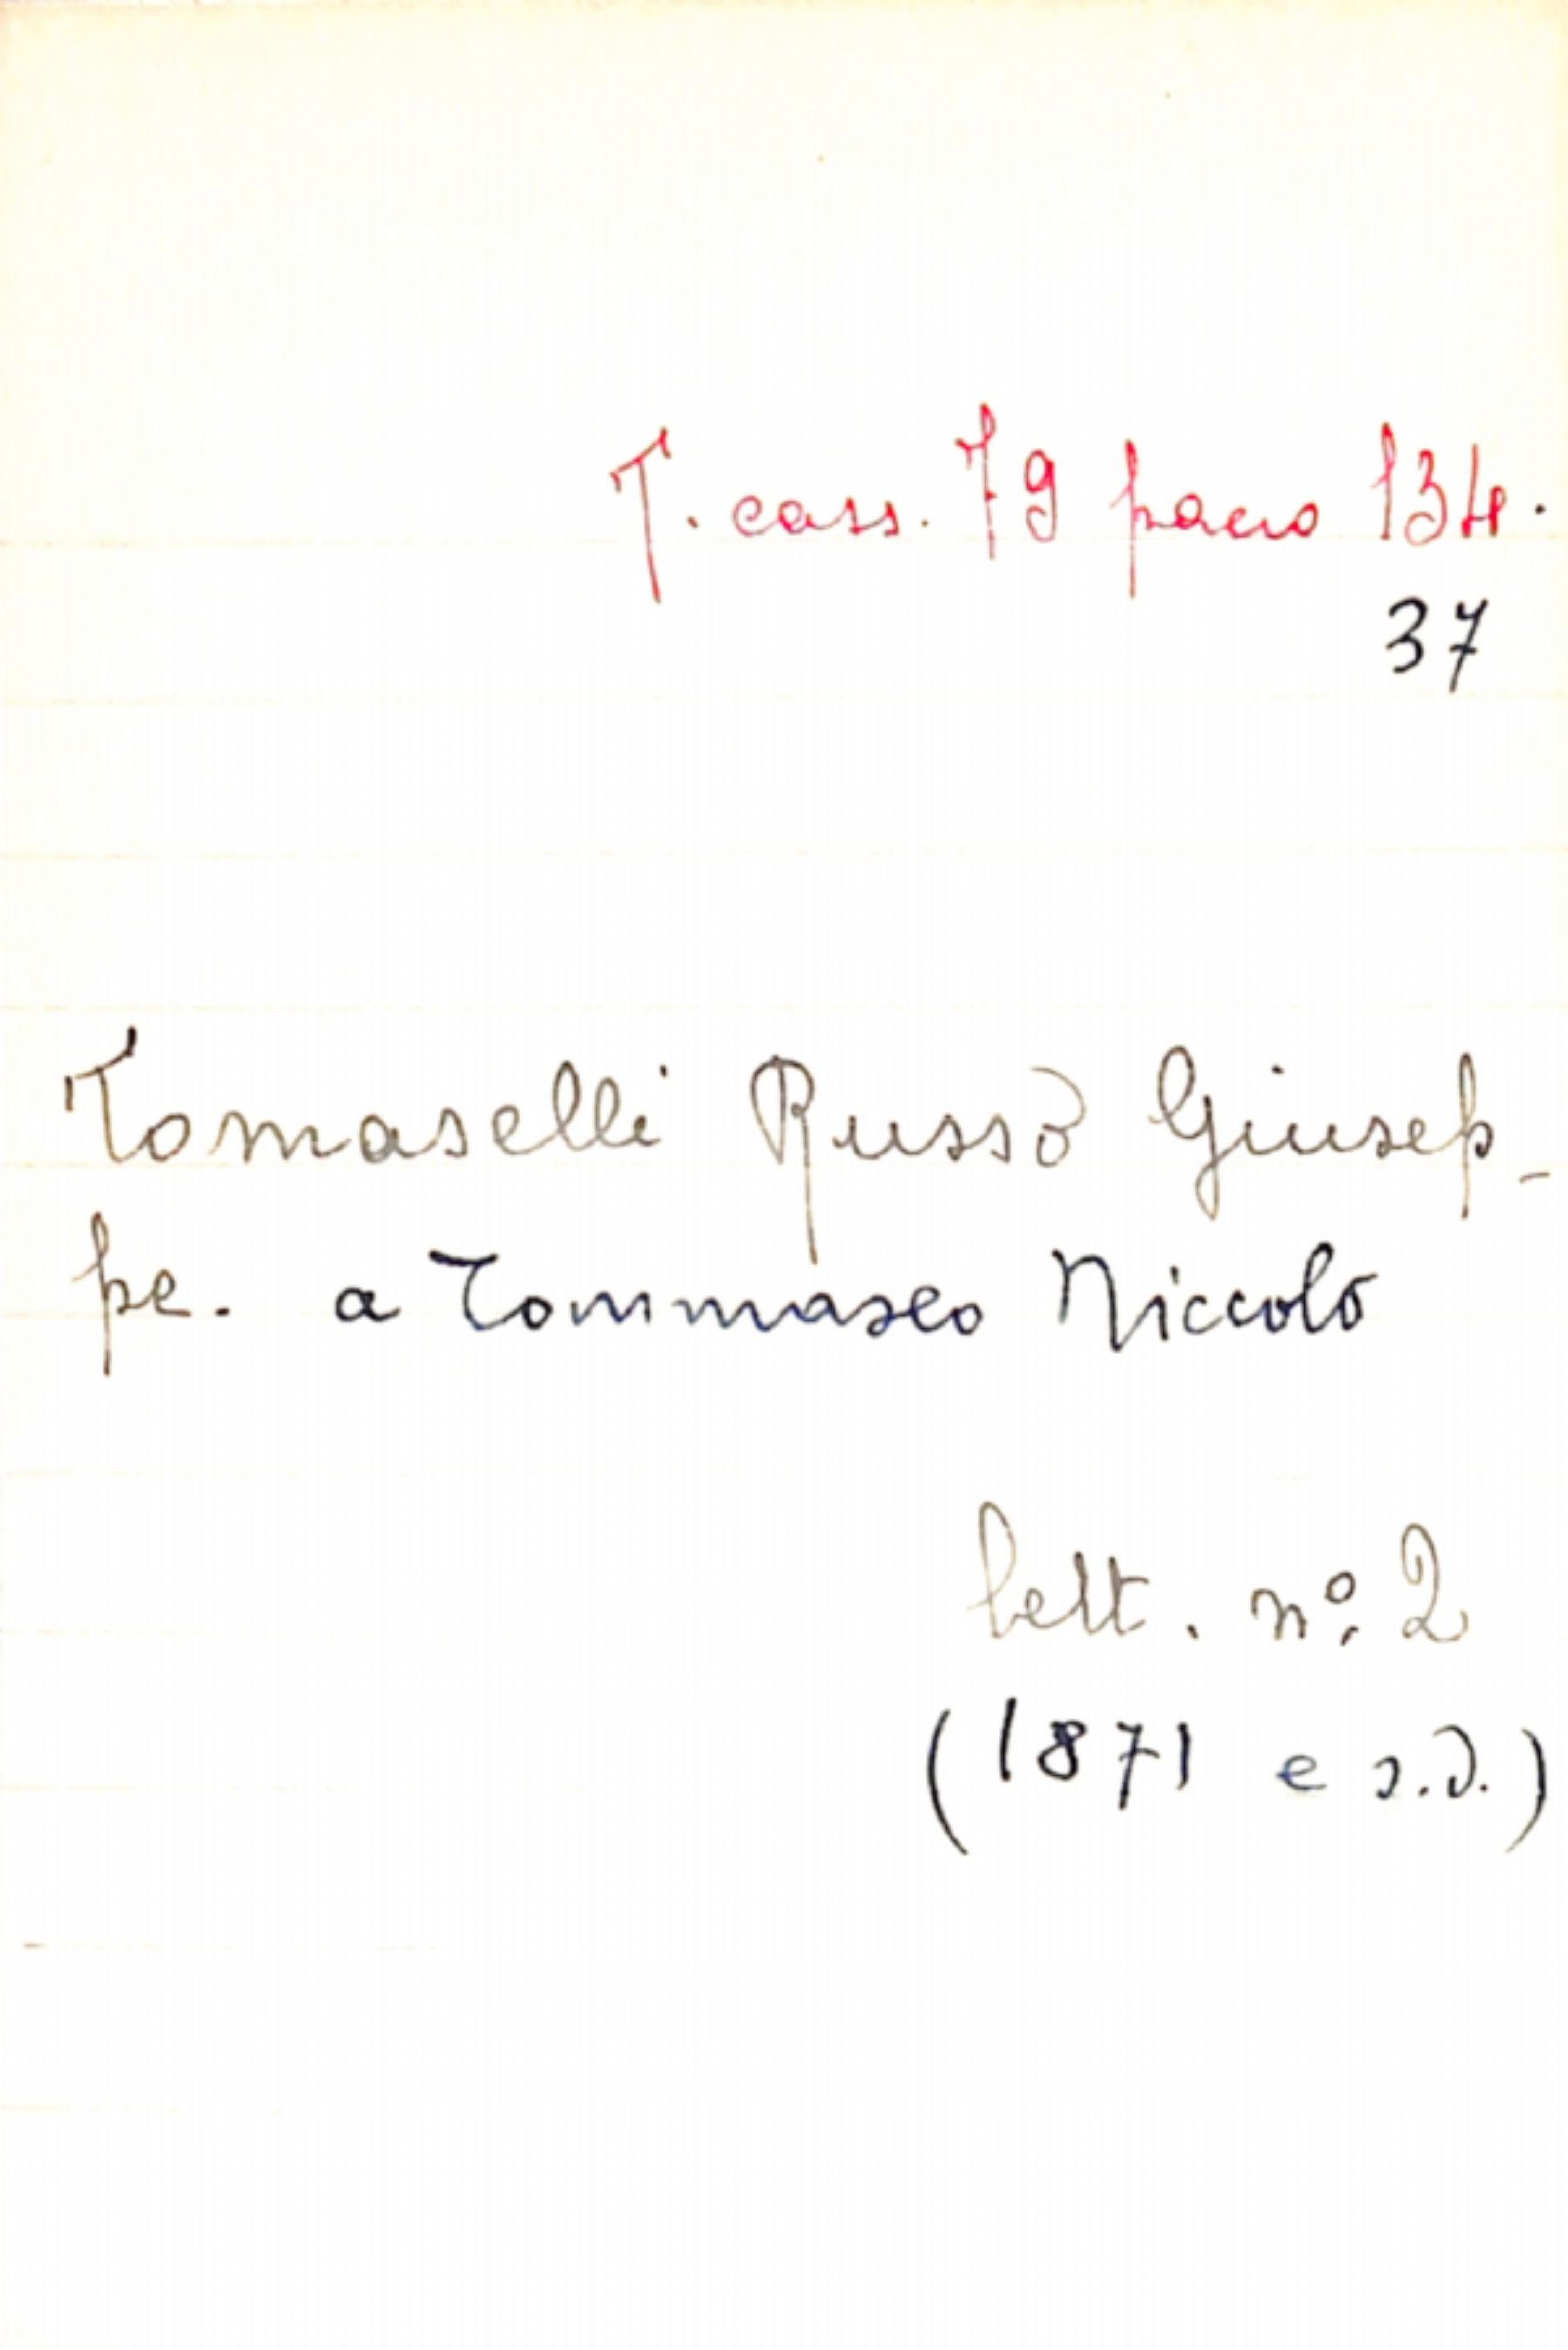 T. cass. 79 pacco 134.
37
Tomaselli Russo Giusep-
pe. a Tommaseo Niccolò
lett. nº. 2
(1871 e s.d.)